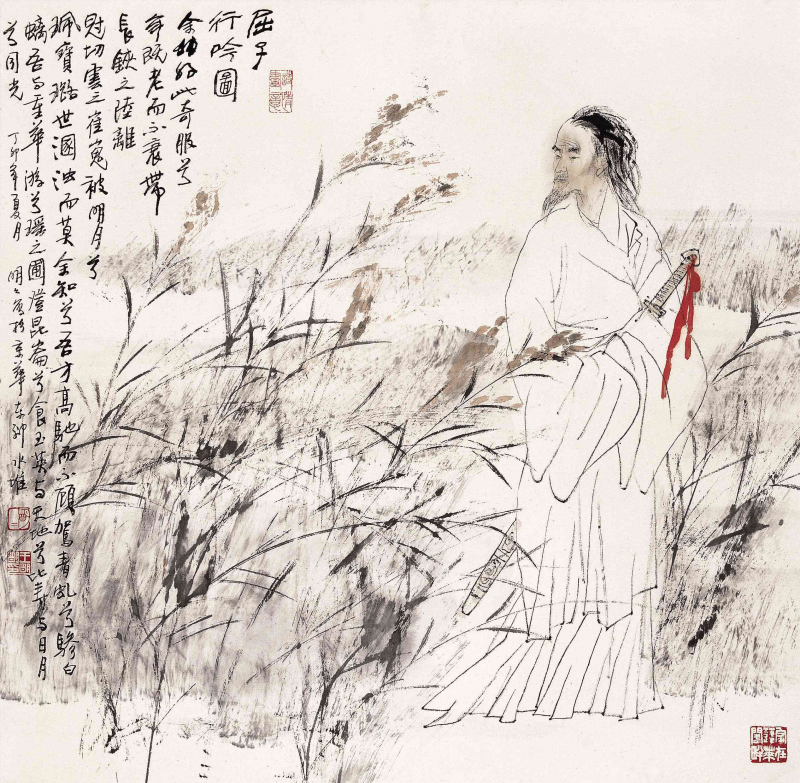 屈子
行吟圖
余幼好此奇服兮
年既老而不衰帶
長鋏之陸離
冠切雲之崔嵬被明月兮
珮寶璐世溷浊而莫余知兮吾方高馳而不顧駕青虬兮驂白
螭吾与重華游兮瑶之圃登昆崙兮食玉英与天地兮比寿与日月
兮同光
丁卯年夏月 明明寫於京華东郊水堆